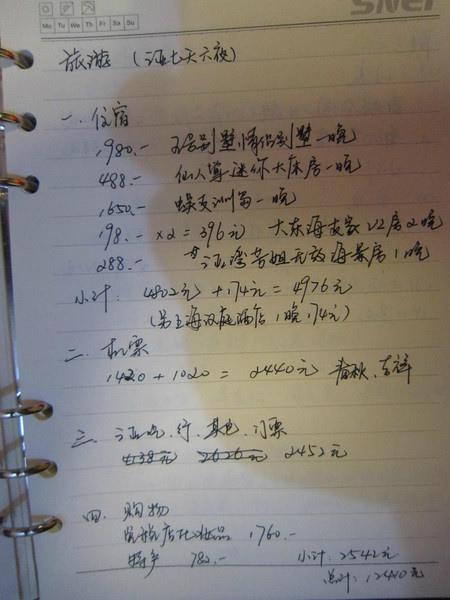 Mo Tu We Th Fr Sa Su
旅游 (三亚七天六夜)
一. 住宿
1980.- 别墅情侣别墅一晚
488.- 仙人掌迷你大床房一晚
1650.- 蜈支洲岛一晚
198.- ×2=396元 大东海友家V2房2晚
288.- 三亚湾芳姐无敌海景房1晚
小计: 4802元+174元=4976元
(另上海汉庭酒店1晚,174元)
二. 机票
1420+1020=2440元 春秋、吉祥
三. 三亚吃、行、其他、门票
2626元 2452元
四. 购物
免税店化妆品 1760.-
特产 782.- 小计:2542元
总计:12410元